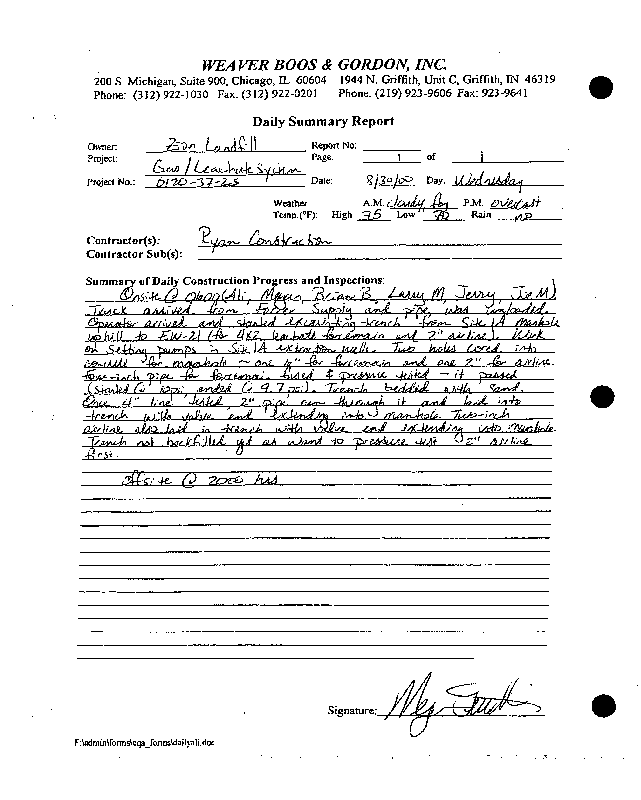 WEAVER BOOS & GORDON, INC.
200 S. Michigan, Suite 900, Chicago, IL 60604 1944 N. Griffith, Unit C, Griffith, IN 46319
Phone: (312) 922-1030 Fax: (312) 922-0201 Phone: (219) 923-9606 Fax: 923-9641
Daily Summary Report
Owner: Zion Landfill Report No:
Project: Gas/Leachate System Page: 1 of 1
Project No.: 0120-37-25 Date: 8/30/00 Day: Wednesday
Weather A.M. cloudy fog P.M. overcast
Temp.(°F): High 75 Low 70 Rain no
Contractor(s): Ryan Construction
Contractor Sub(s):
Summary of Daily Construction Progress and Inspections:
Onsite @ (Ali, Brian B, Larry M, Jerry, Joe M)
Truck arrived from Supply and pipe was unloaded.
Operator arrived and started excavating trench from Site 1A manhole
uphill to EW-21 (for 4x2 leachate forcemain and 2" airline). Work
on setting pumps in Site 1A extraction wells. Two holes cored into
for manhole ~ one 4" for forcemain and one 2" for airline.
Four-inch pipe for forcemain fused & pressure tested - it passed
(started @ ended @ 9.7 psi). Trench bedded with sand.
Once 4" line tested, 2" pipe run through it and laid into
trench with valve and extending into manhole. Two-inch
airline also laid in trench with valve and extending into manhole.
Trench not backfilled yet as want to pressure test 2" airline
first.
Offsite @ 2000 hrs
Signature:
F:\admin\forms\cqa_forms\dailyali.doc